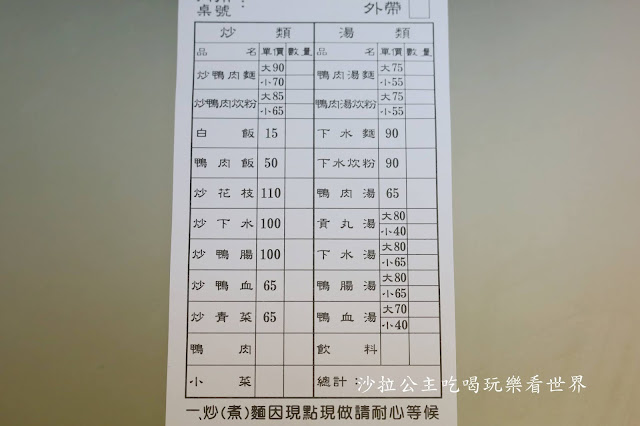 桌號：
外帶
炒類 湯類
品名 單價 數量 品名 單價 數量
炒鴨肉麵 大90 小70 鴨肉湯麵 大75 小55
炒鴨肉炊粉 大85 小65 鴨肉湯炊粉 大75 小55
白飯 15 下水麵 90
鴨肉飯 50 下水炊粉 90
炒花枝 110 鴨肉湯 65
炒下水 100 貢丸湯 大80 小40
炒鴨腸 100 下水湯 大80 小65
炒鴨血 65 鴨腸湯 大80 小65
炒青菜 65 鴨血湯 大70 小40
鴨肉 飲料
小菜 總計：
沙拉公主吃喝玩樂看世界
一、炒(煮)麵因現點現做請耐心等候